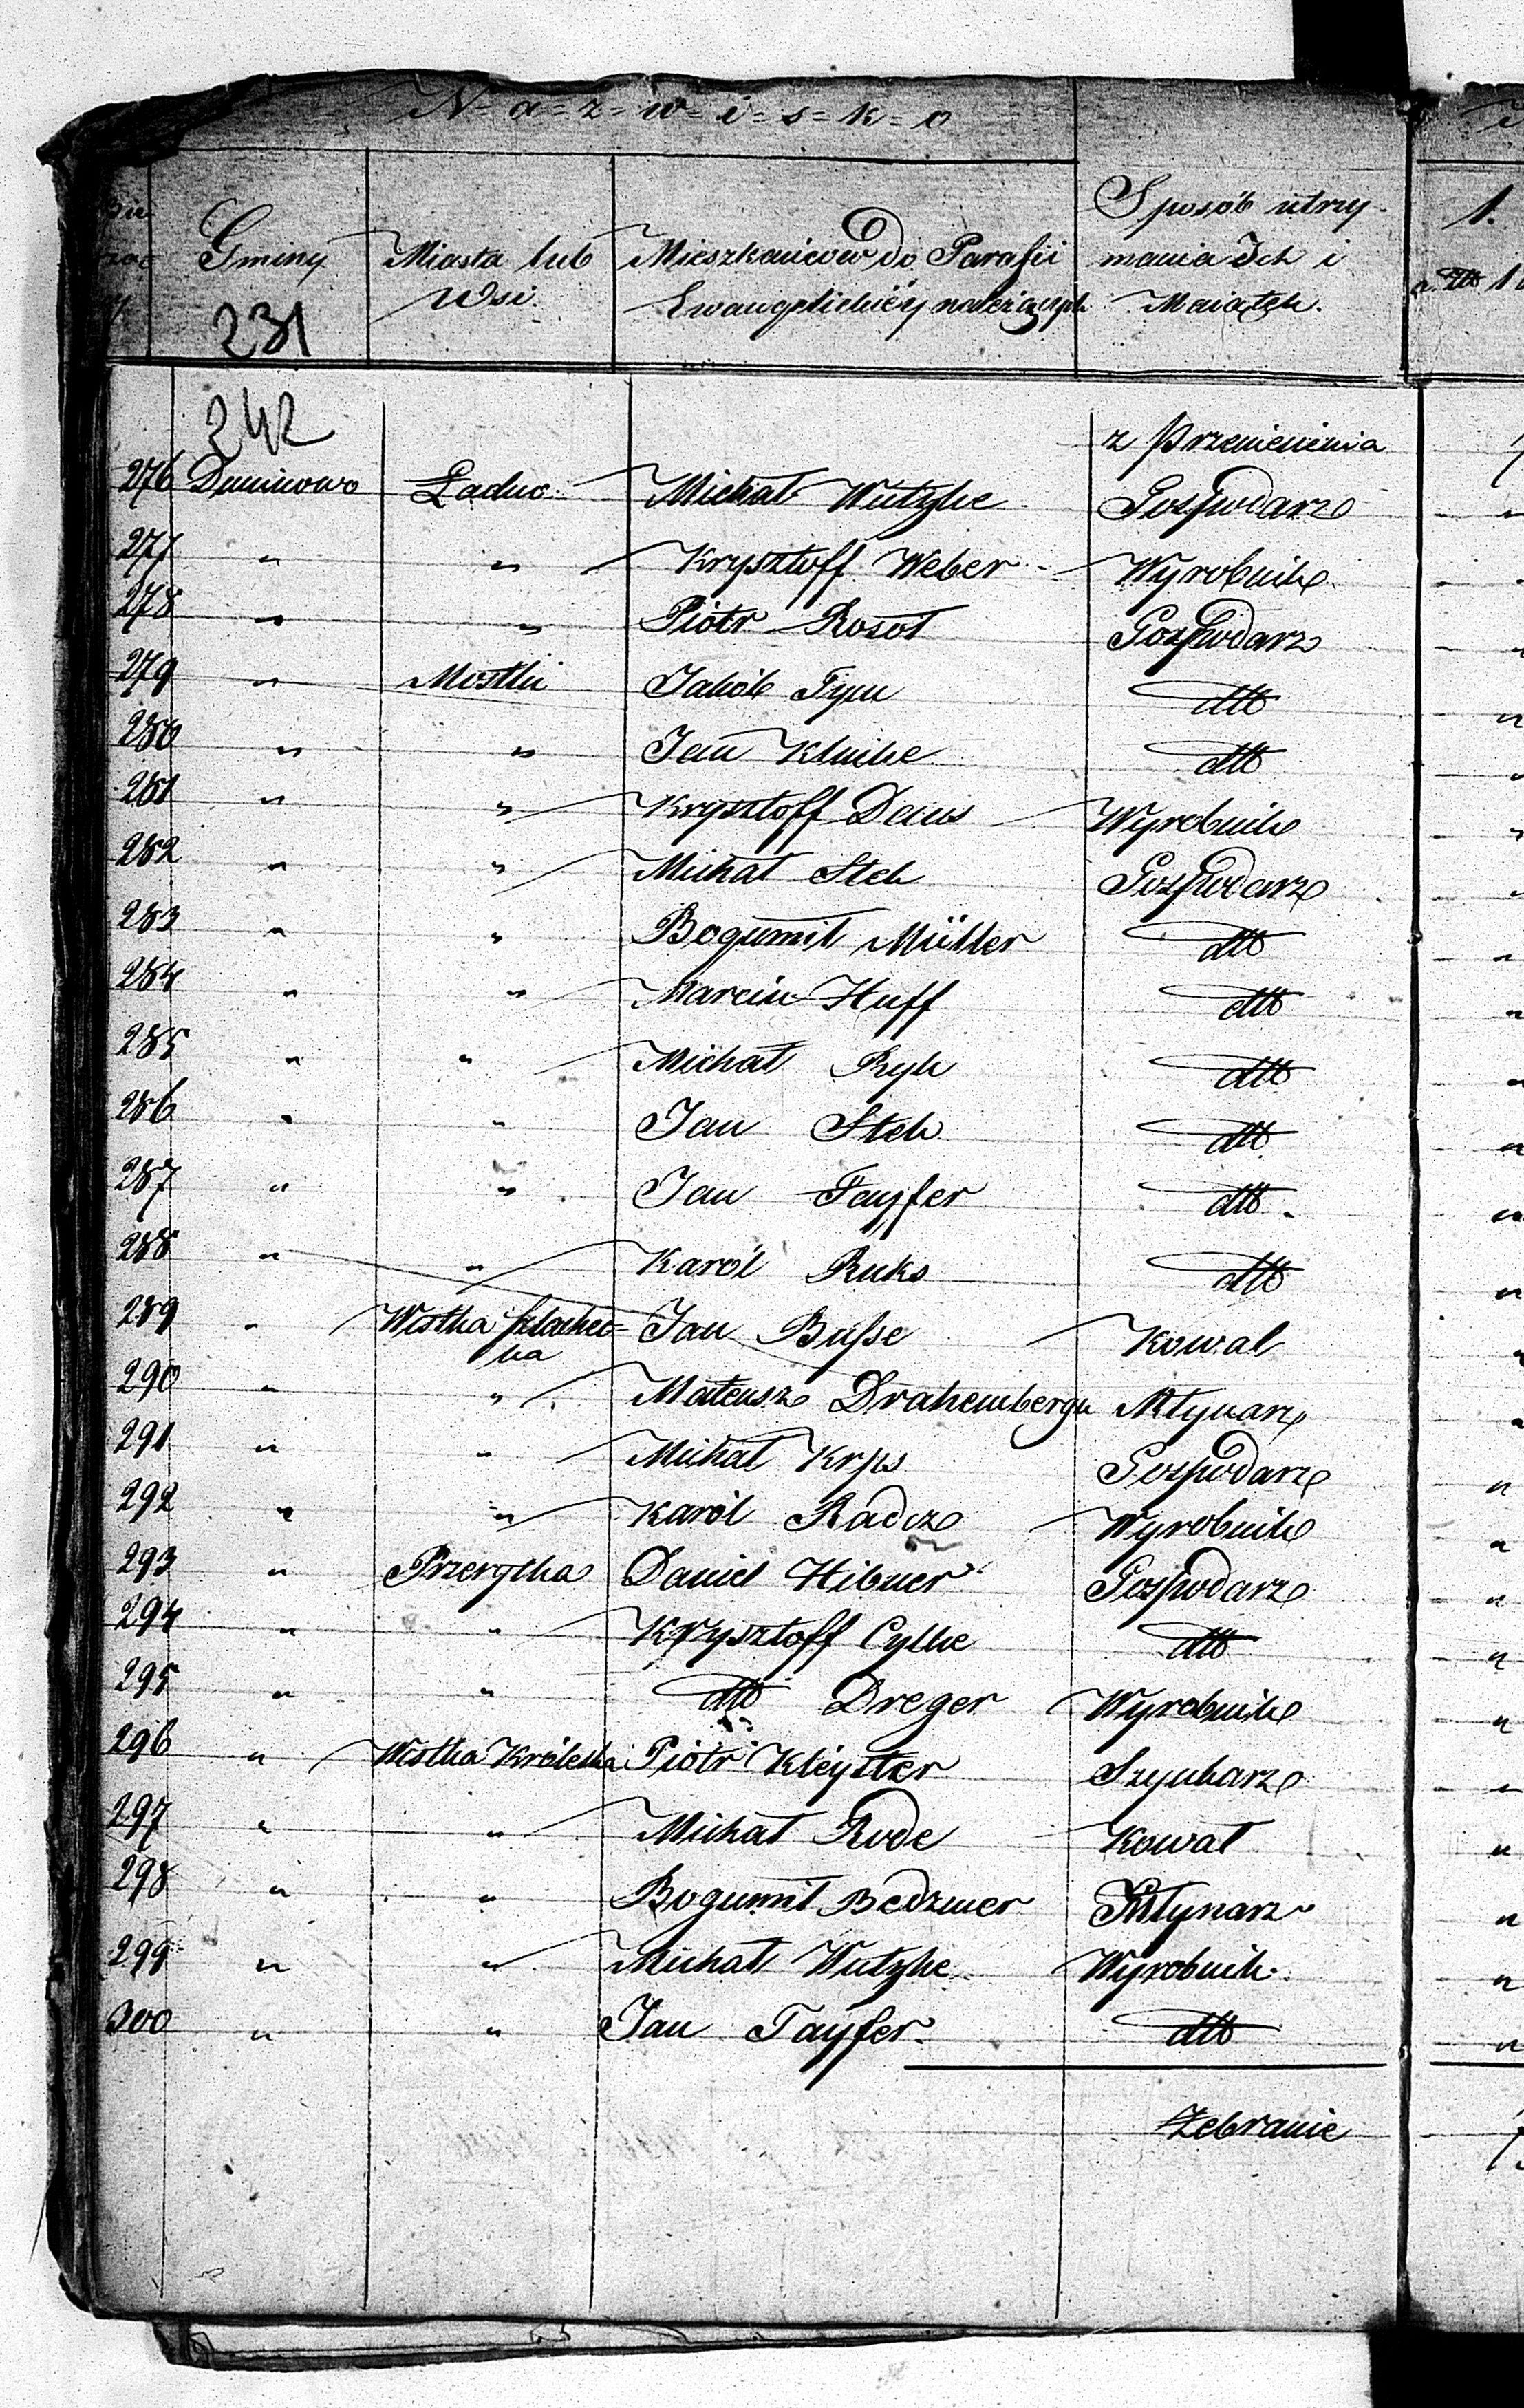 N=a=z=w=i=s=k=o
Gminy
Miasta lub
Wsi.
Mieszkańcow Do Parafii
Ewangelickiéy należących
Sposób utrzy-
mania Ich i
Maiątek.
1.
231
242
z Przeniesienia
276 Duninowo Ladno Michał Wutzke Gospodarz
277 " " Krysztoff Weber Wyrobnik
278 " " Piotr Rosoł Gospodarz
279 " Mostki Jakób Tym dtto
280 " " Jan Klinke dtto
281 " " Krysztoff Deus Wyrobnik
282 " " Michał Stek Gospodarz
283 " " Bogumił Müller dtto
284 " " Marcin Huff dtto
285 " " Michał Ryk dtto
286 " " Jan Stek dtto
287 " " Jan Fayfer dtto
288 " " Karól Ruks dtto
289 " Wistka Szlachec=
ka Jan Busse Kowal
290 " " Mateusz Drahembergu Młynarz
291 " " Michał Krys Gospodarz
292 " " Karól Radcz Wyrobnik
293 " Przerytka Daniel Hibner Gospodarz
294 " " Krysztoff Cylke dtto
295 " " dtto Dreger Wyrobnik
296 " Wistka Królewska Piotr Kleyster Szynkarz
297 " " Michał Rode Kowal
298 " " Bogumił Bedzmer Młynarz
299 " " Michał Wutzke Wyrobnik
300 " " Jan Fayfer dtto
Zebranie